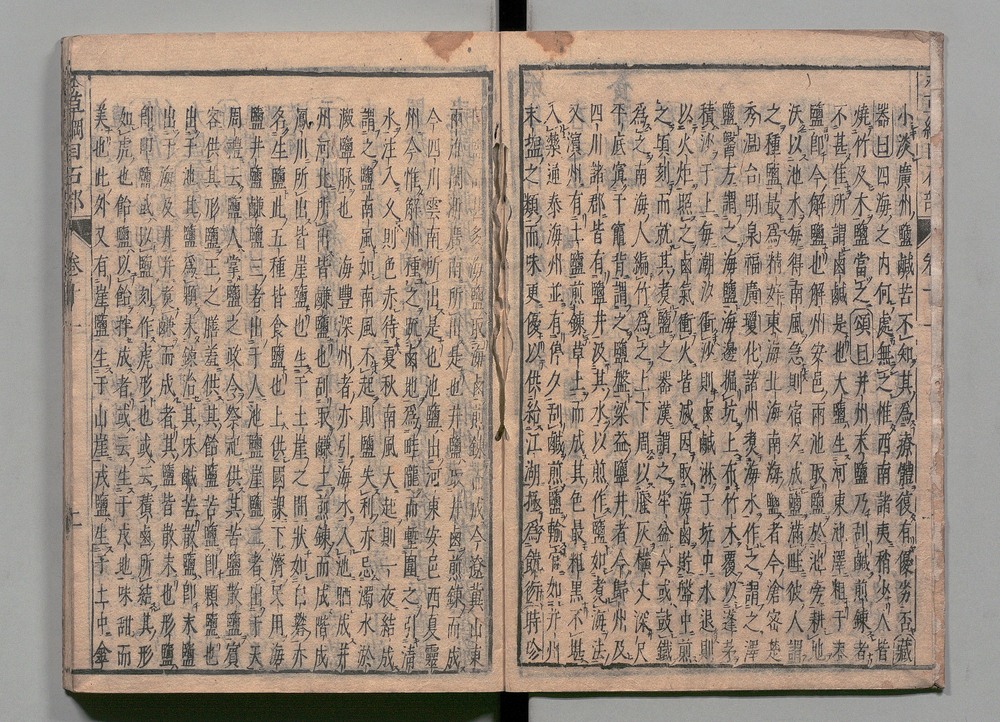 小淡廣州鹽鹹苦不知其爲療體復有優劣否藏
器曰四海之内何處無之惟西南諸夷稍少人皆
燒竹及木鹽當之頌曰并州末鹽乃刮鹹煎鍊者
不甚佳所謂鹵鹹是也大鹽生河東池澤粗于末
鹽即今解鹽也解州安邑兩池取鹽於池旁耕地
沃以池水每得南風急則宿夕成鹽滿畦彼人謂
之種鹽最爲精好東海北海南海鹽者今滄密楚
秀温台明泉福廣瓊化諸州煑海水作之謂之澤
鹽醫方謂之海鹽海邊掘坑上布竹木覆以蓬茅
積沙于上每潮汐衝沙則鹵鹹淋于坑中水退則
以火炬照之鹵氣衝火皆滅因取海鹵貯盤中煎
之頃刻而就其煑鹽之器漢謂之牢盆今或鼓鐵
爲之南海人編竹爲之上下周以蜃灰横丈深尺
平底寘于竈背謂之鹽盤梁益鹽井者今歸州及
四川諸郡皆有鹽井汲其水以煎作鹽如煑海法
又濱州有土鹽煎鍊草土而成其色最粗黑不堪
入藥通泰海州並有停夕刮鹹煎鹽輸官如并州
末鹽之類而味更優以供給江湖極爲饒衍時珍
多海鹽取海鹵煎鍊而成今遼冀山東
兩淮閩浙廣南所出是也井鹽取井鹵煎鍊而成
今四川雲南所出是也池鹽出河東安邑西夏靈
州今惟解州種之疏鹵地爲畦隴而塹圍之引清
水注入久則色赤待夏秋南風大起則一夜結成
謂之鹽南風如南風不起則鹽失利亦忌濁水淤
澱鹽脉也 海豐深州者亦引海水入池晒成并
州河北所出皆鹻鹽也刮取鹻土煎鍊而成階成
鳳川所出皆崖鹽也生于土崖之間狀如白礬亦
名生鹽此五種皆食鹽也上供國課下濟民用海
鹽井鹽鹻鹽三者出于人池鹽崖鹽二者出于天
周禮云鹽人掌鹽之政令祭祀供其苦鹽散鹽賓
客供其形鹽王之膳羞供其飴鹽苦鹽即顆鹽也
出于池其鹽爲顆未鍊治其味鹹苦散鹽即末鹽
出于海及井并煑鹻而成者其鹽皆散末也形鹽
即印鹽或以鹽刻作虎形也或云積鹵所結其形
如虎也飴鹽以飴拌成者或云生于戎地味甜而
美也此外又有崖鹽生于山崖戎鹽生于土中傘
本草綱目石部 卷十一 十一